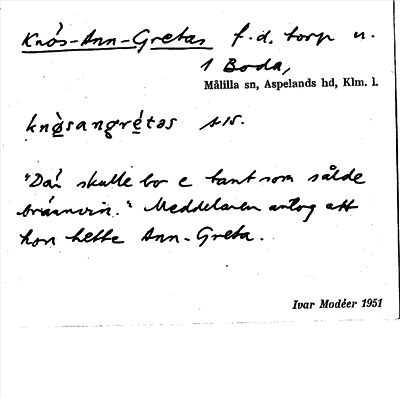 Knös-Ann-Gretas f.d. torp u.
1 Boda,
Målilla sn, Aspelands hd, Klm. l.
knø̀sangrétas
"Där skulle bo e tant som sålde
brännvin." Meddelaren antog att
hon hette Ann-Greta.
Ivar Modéer 1951